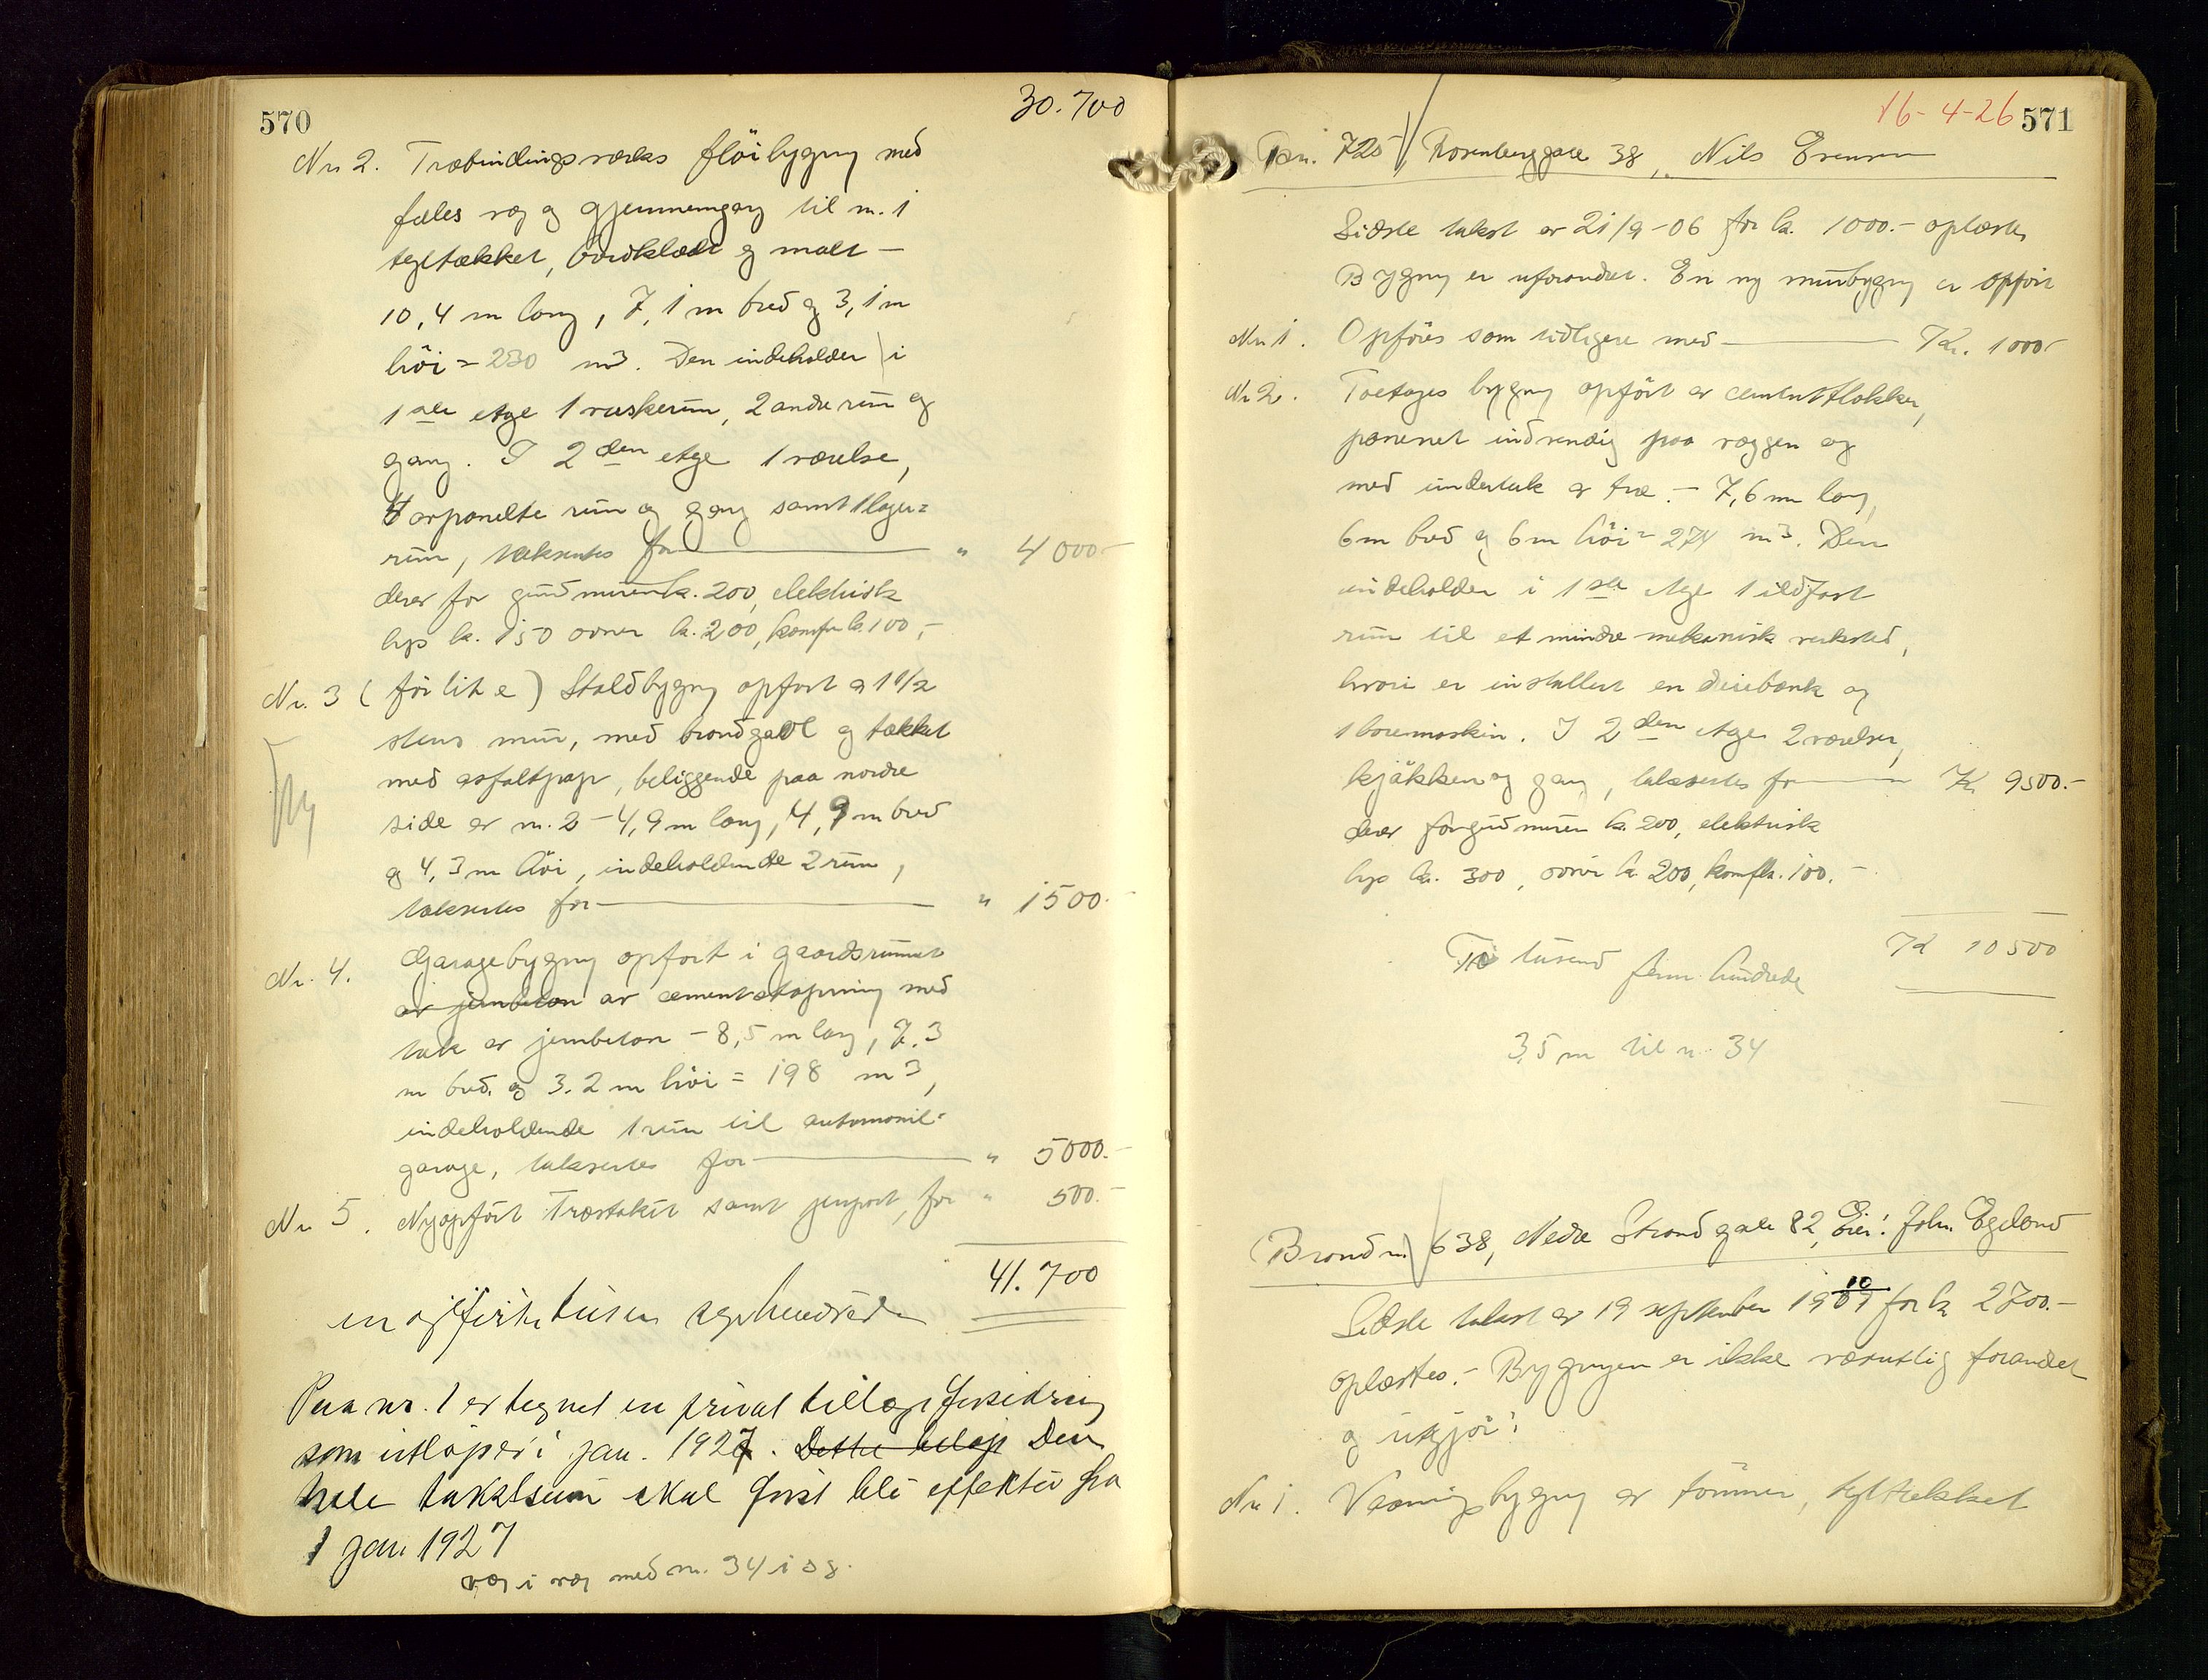 570
30.700
Nr 2. Træbindingsværks flöibygng med
fæles væg og gjennemgang til nr. 1
tegltækket, bordklædt og malt –
10,4 m lang, 7,1 m bred og 3,1 m
höi = 230 m3. Den indeholder i
1ste etage 1 vaskerum, 2 andre rum og
gang. I 2den etage 1 værelse,
4 avpanelte rum og gang samt 1 lager=
rum, takseres for " 4000–
derav for grundmuren k. 200, elektrisk
lys k. 150 ovner k. 200, komfur k. 100,–
Nr. 3 (för lit e) Staldbygng opfört av 1 1/2
stens mur, med brandgavl og tækket
med asfaltpap, beliggende paa nordre
side av nr. 2 – 4,9 m lang, 4,9 m bred
og 4,3 m höi, indeholdende 2 rum,
takseres for " 1500.–
Nr. 4. Garagebygng opfört i gaardsrummet
av jernbeton av cementstøpning med
tak av jernbeton – 8,5 m lang, 7,3
m bred og 3.2 m höi = 198 m3,
indeholdende 1 rum til automobil-
garage, takseres for " 5000.–
Nr 5. Nyopfört træstakit samt jernport, for " 500.–
41.700
en og firti tusen syv hundrede
Paa nr. 1 er tegnet en privat tillægsforsikring
som utlöper i jan. 1927. Dette beløp Den
hele takstsum skal først bli effektiv fra
1 jan 1927
væg i væg med nr. 34 i s g.
16-4-26 571
Br.nr. 725, Rosenberggate 38, Nils Evensen
Sidste takst av 21/9-06 for k. 1000.– oplæstes
Bygng er uforandret. En ny murbygng er opfört
Nr 1. Opföres som tidligere med Kr. 1000–
Nr 2. Toetages bygng opfört av cementblokker,
panenet indvendig paa væggen og
med undertak av træ. – 7,6 m lang,
6 m bred og 6 m höi = 274 m3. Den
indeholder i 1ste etage 1 ildfast
rum til et mindre mekanisk verksted,
hvori er installert en dreiebænk og
1 boremaskin. I 2den etage 2 værelser,
kjökken og gang, takseres for Kr 9500.–
derav for grundmuren k. 200, elektrisk
lys k. 300, ovner k. 200, komf k. 100.–
Kr 10500
Ti tusend fem hundrede
3,5 m til nr. 34
(Brand nr.) 638, Nedre Strandgate 82, Eier: John Egeland
Sidste takst av 19 september 1907 10 for k 2700.–
oplæstes. – Bygningen er ikke væsentlig forandret
og utgjör:
Nr 1. Vaaningsbygng av tömmer, tegltækket